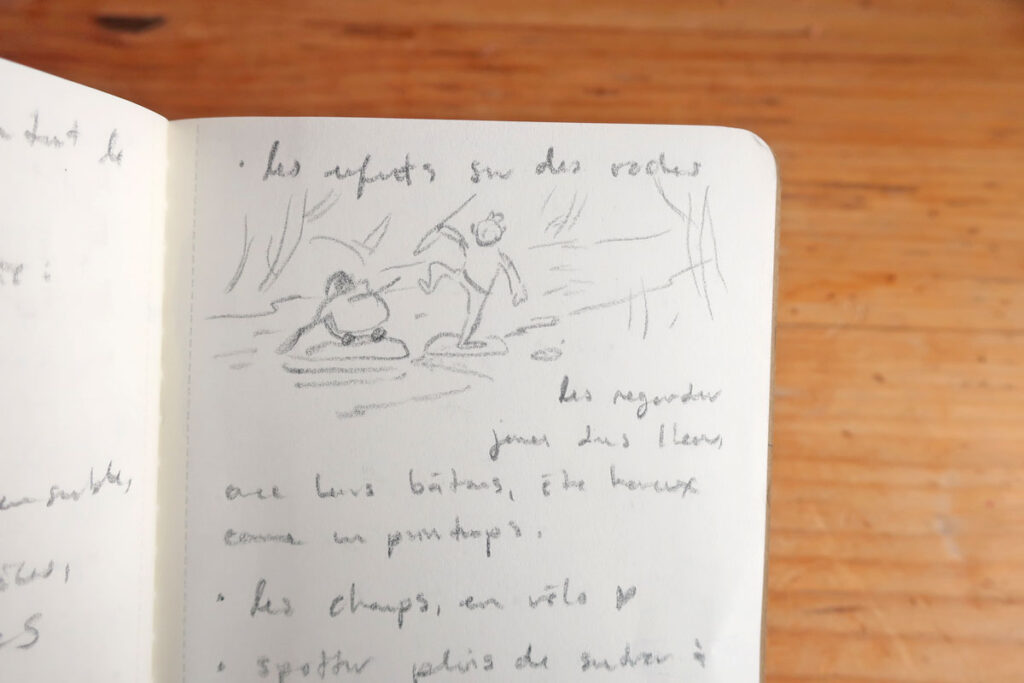 tout le
: 
ensemble,
• Les enfants sur des rochers
Les regarder
jouer dans l'eau,
avec leurs bâtons, être heureux
comme un printemps.
• Les champs, en vélo ♥
• spotter pleins de